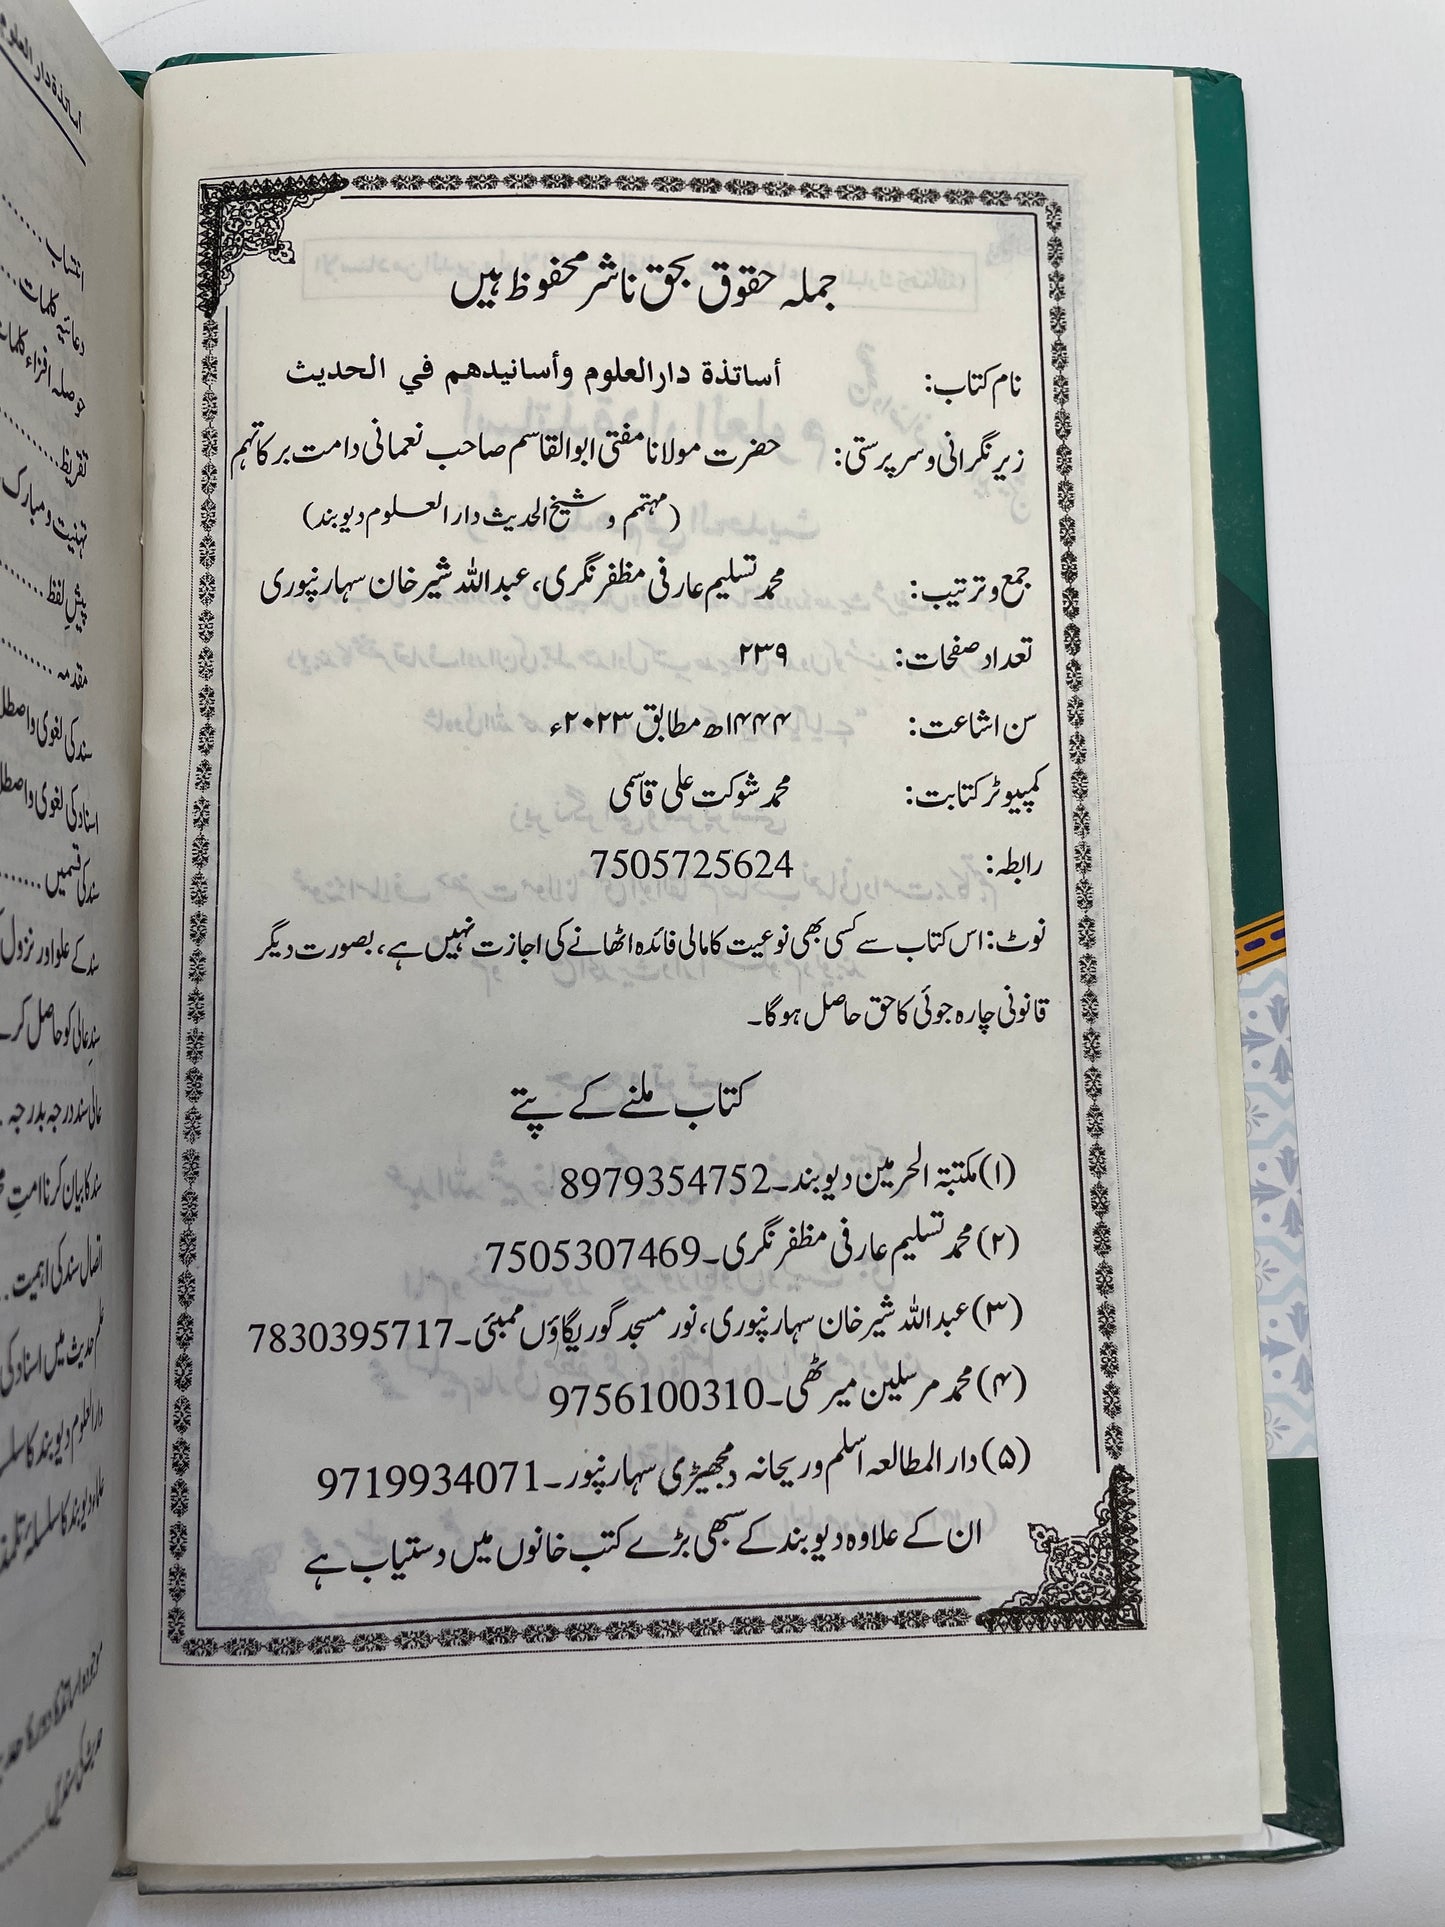 جملہ حقوق بحق ناشر محفوظ ہیں
نام کتاب: أساتذة دارالعلوم وأسانيدهم في الحديث
زیر نگرانی و سرپرستی: حضرت مولانا مفتی ابوالقاسم صاحب نعمانی دامت برکاتہم
(مہتمم و شیخ الحدیث دار العلوم دیوبند)
جمع و ترتیب: محمد تسلیم عارفی مظفرنگری، عبداللہ شیر خان سہارنپوری
تعداد صفحات: ۲۳۹
سن اشاعت: ۱۴۴۴ھ مطابق ۲۰۲۳ء
کمپیوٹر کتابت: محمد شوکت علی قاسمی
رابطہ: 7505725624
نوٹ: اس کتاب سے کسی بھی نوعیت کا مالی فائدہ اٹھانے کی اجازت نہیں ہے، بصورت دیگر
قانونی چارہ جوئی کا حق حاصل ہوگا۔
کتاب ملنے کے پتے
(۱) مکتبۃ الحرمین دیوبند۔8979354752
(۲) محمد تسلیم عارفی مظفرنگری۔7505307469
(۳) عبداللہ شیر خان سہارنپوری، نور مسجد گوریگاؤں ممبئی۔7830395717
(۴) محمد مرسلین میرٹھی۔9756100310
(۵) دارالمطالعہ اسلم وریحانہ دمجھیڑی سہارنپور۔9719934071
ان کے علاوہ دیوبند کے سبھی بڑے کتب خانوں میں دستیاب ہے
أساتذۂ دار العلوم
انتساب
دعائیہ کلمات
حوصلہ افزاء کلمات
تقریظ
تہنیت و مبارک
پیش لفظ
مقدمہ
سند کی لغوی و اصطل
اسناد کی لغوی و اصطل
سند کی قسمیں
سند کے علو اور نزول
سندِ عالی کو حاصل کر
عالی سند درجہ بدرجہ
سند کا بیان کرنا امتِ
اتصال سند کی اہمیت
علم حدیث میں اسناد کی
دارالعلوم دیوبند کا سلس
علماء دیوبند کا سلسلۂ تلمذ
حدیث کی سندیں